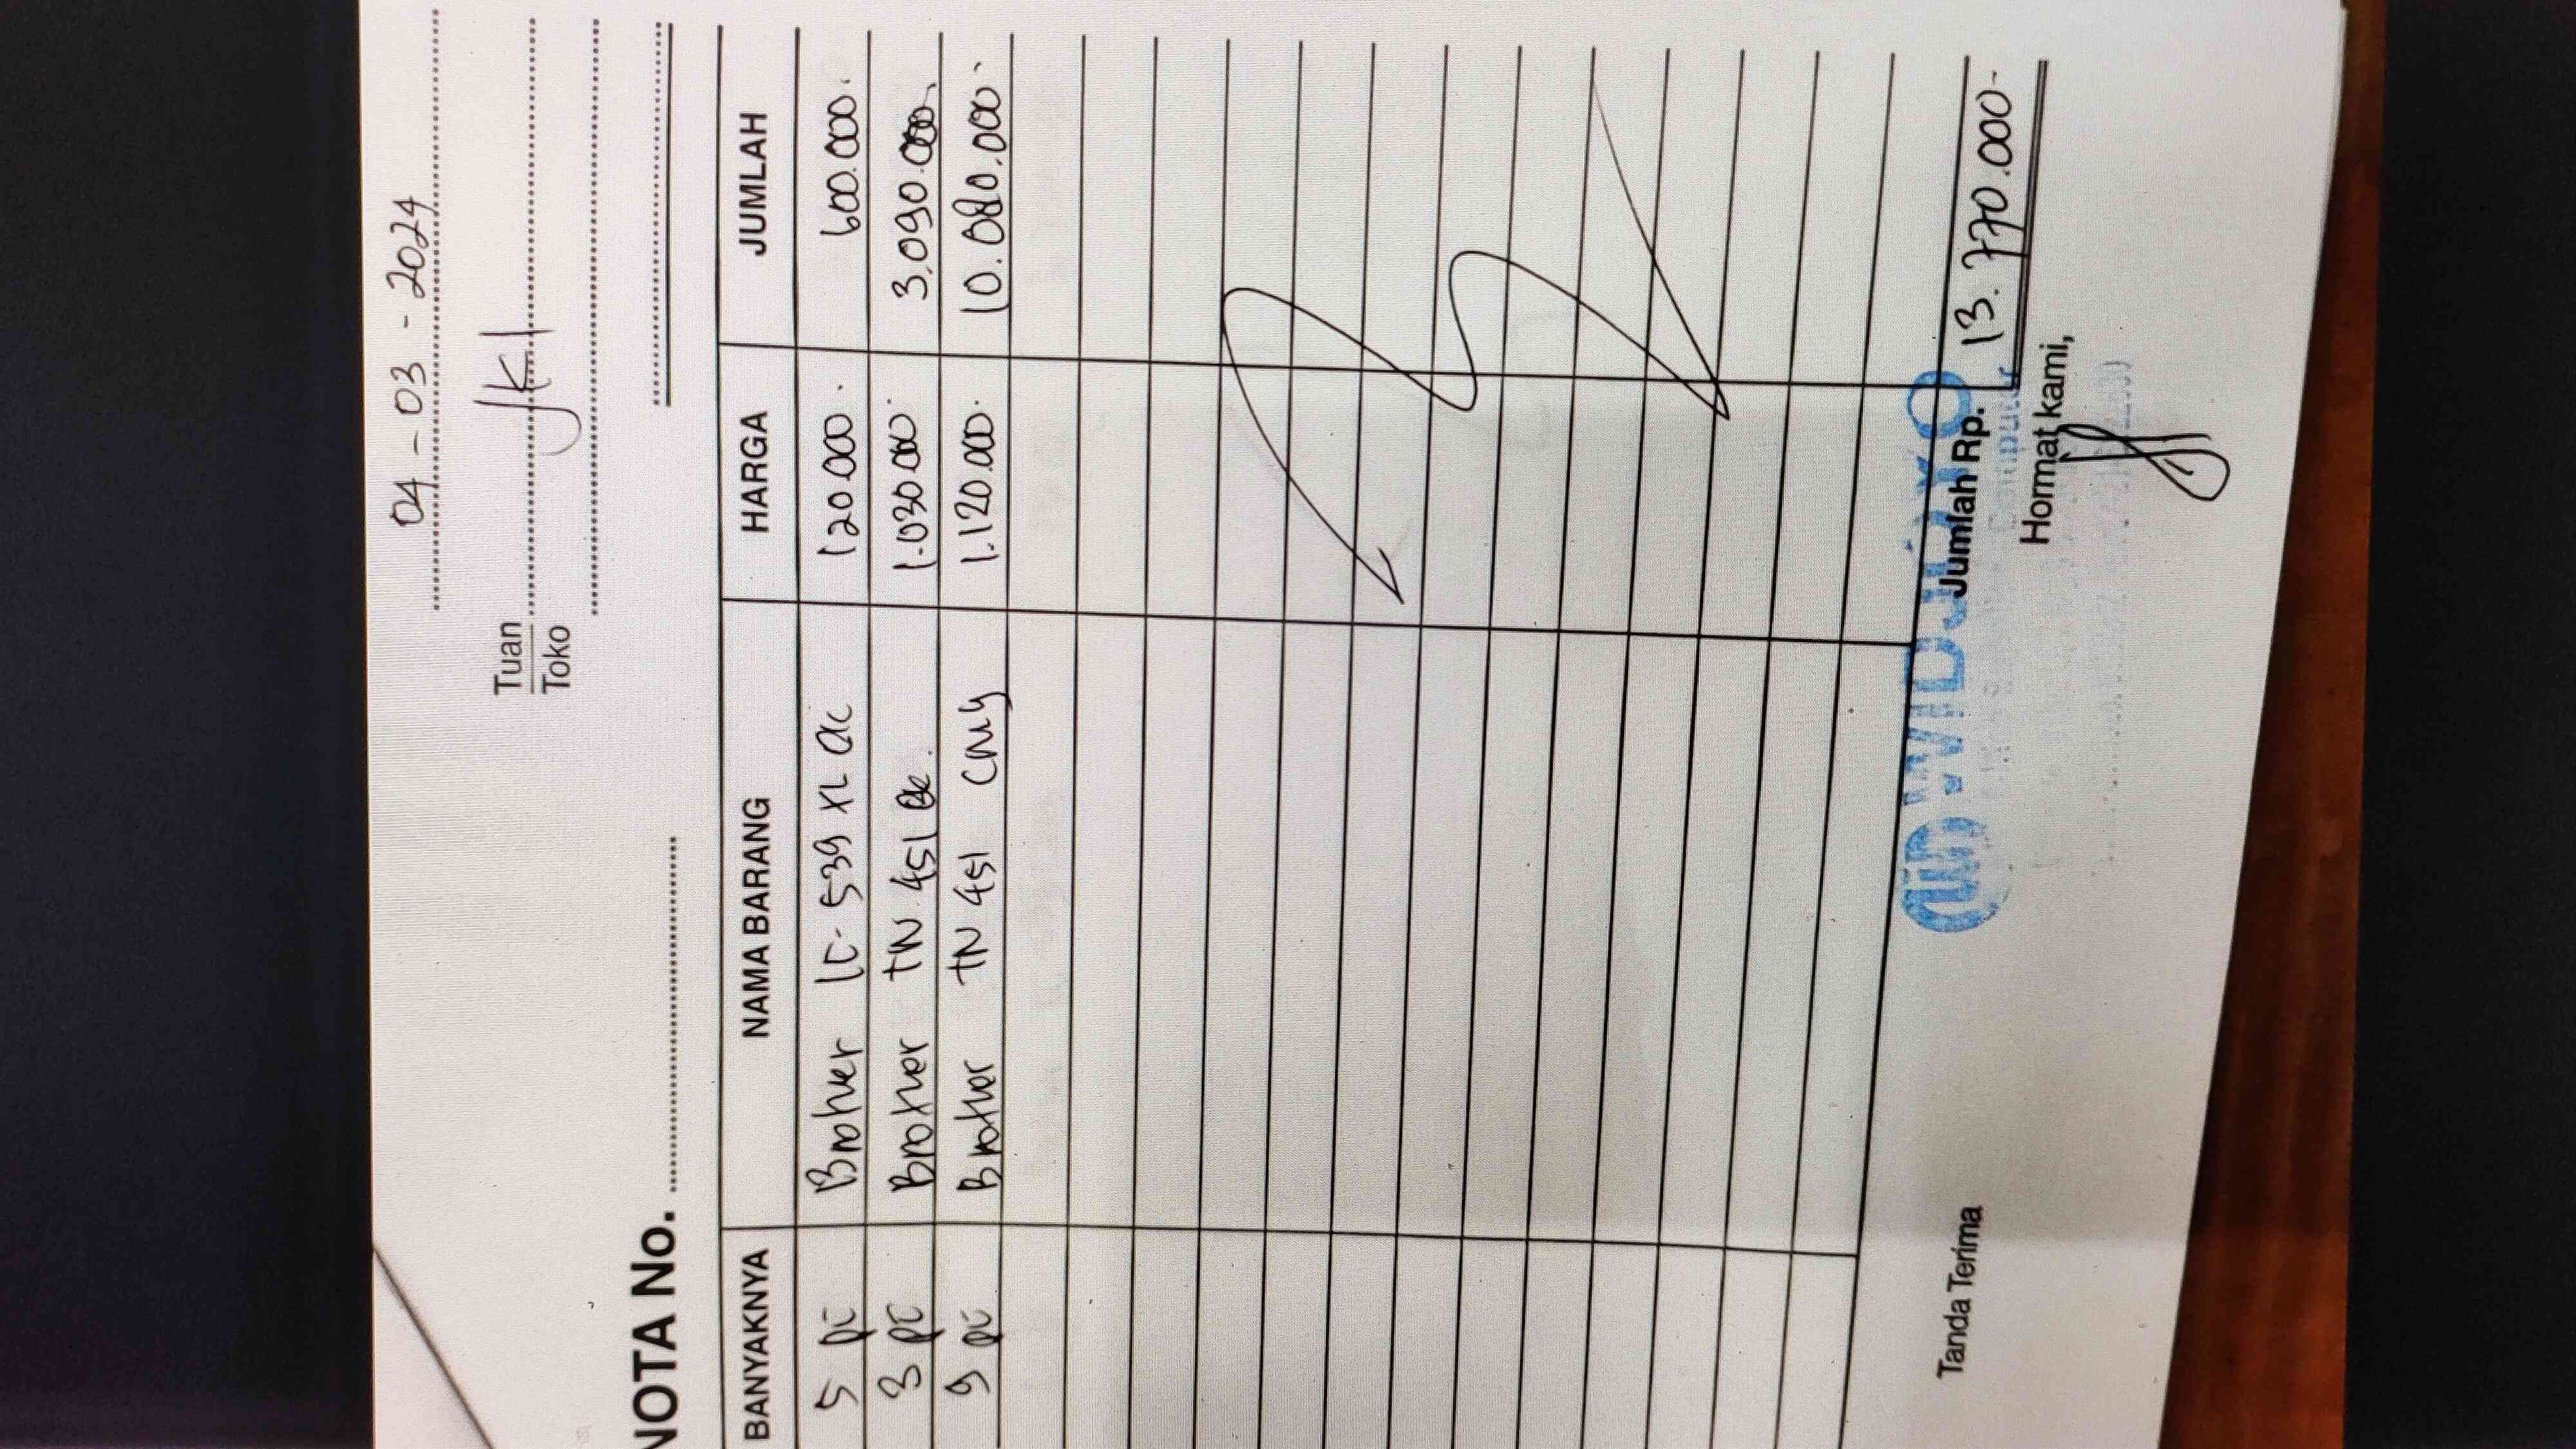 04 - 03 - 2024
Tuan JKL
Toko
NOTA No.
BANYAKNYA NAMA BARANG HARGA JUMLAH
5 pc Brother LC-539 XL BK 120.000. 600.000.
3 pc Brother TN 451 BK. 1.030.000. 3.090.000,
9 pc Brother TN 451 CMY 1.120.000. 10.080.000,-
Jumlah Rp. 13.770.000-
WIDJOYO
Tanda Terima Hormat kami,